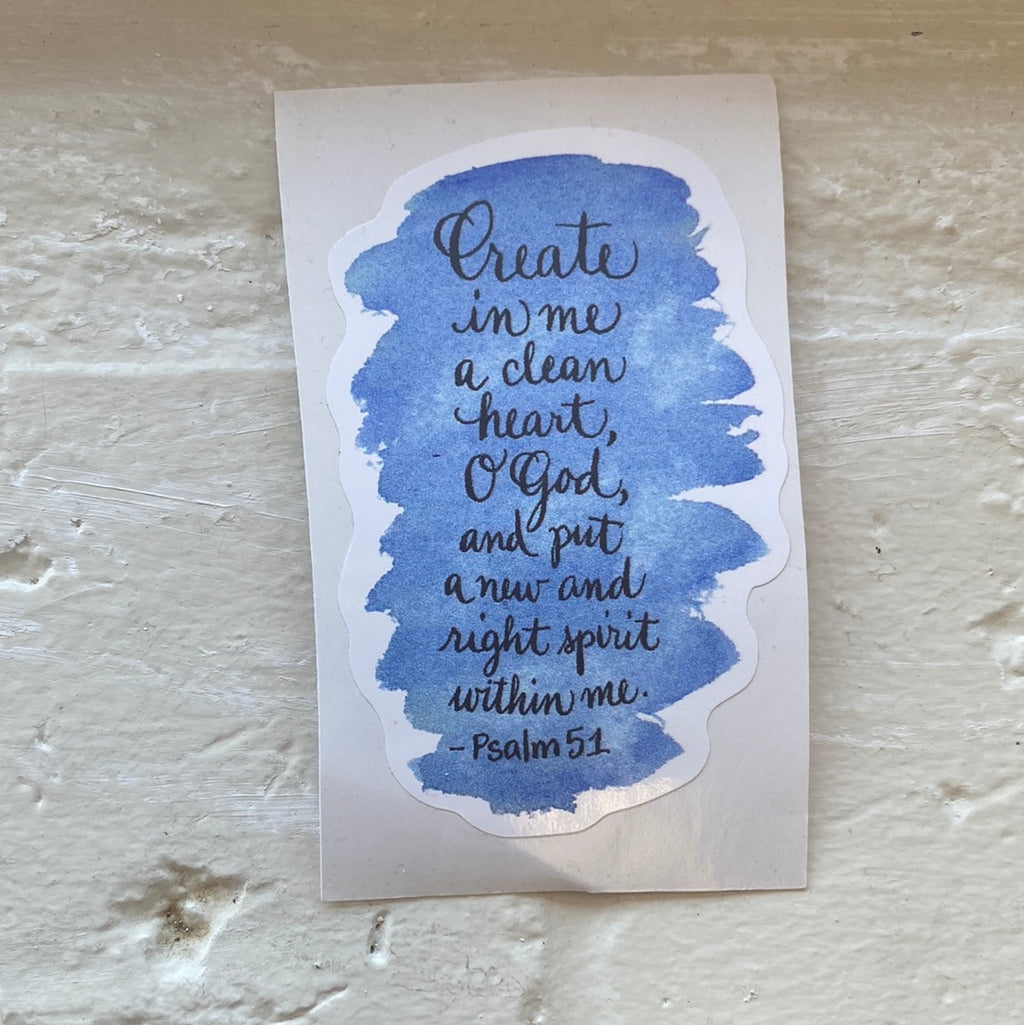 Create
in me
a clean
heart,
O God,
and put
a new and
right spirit
within me.
- Psalm 51